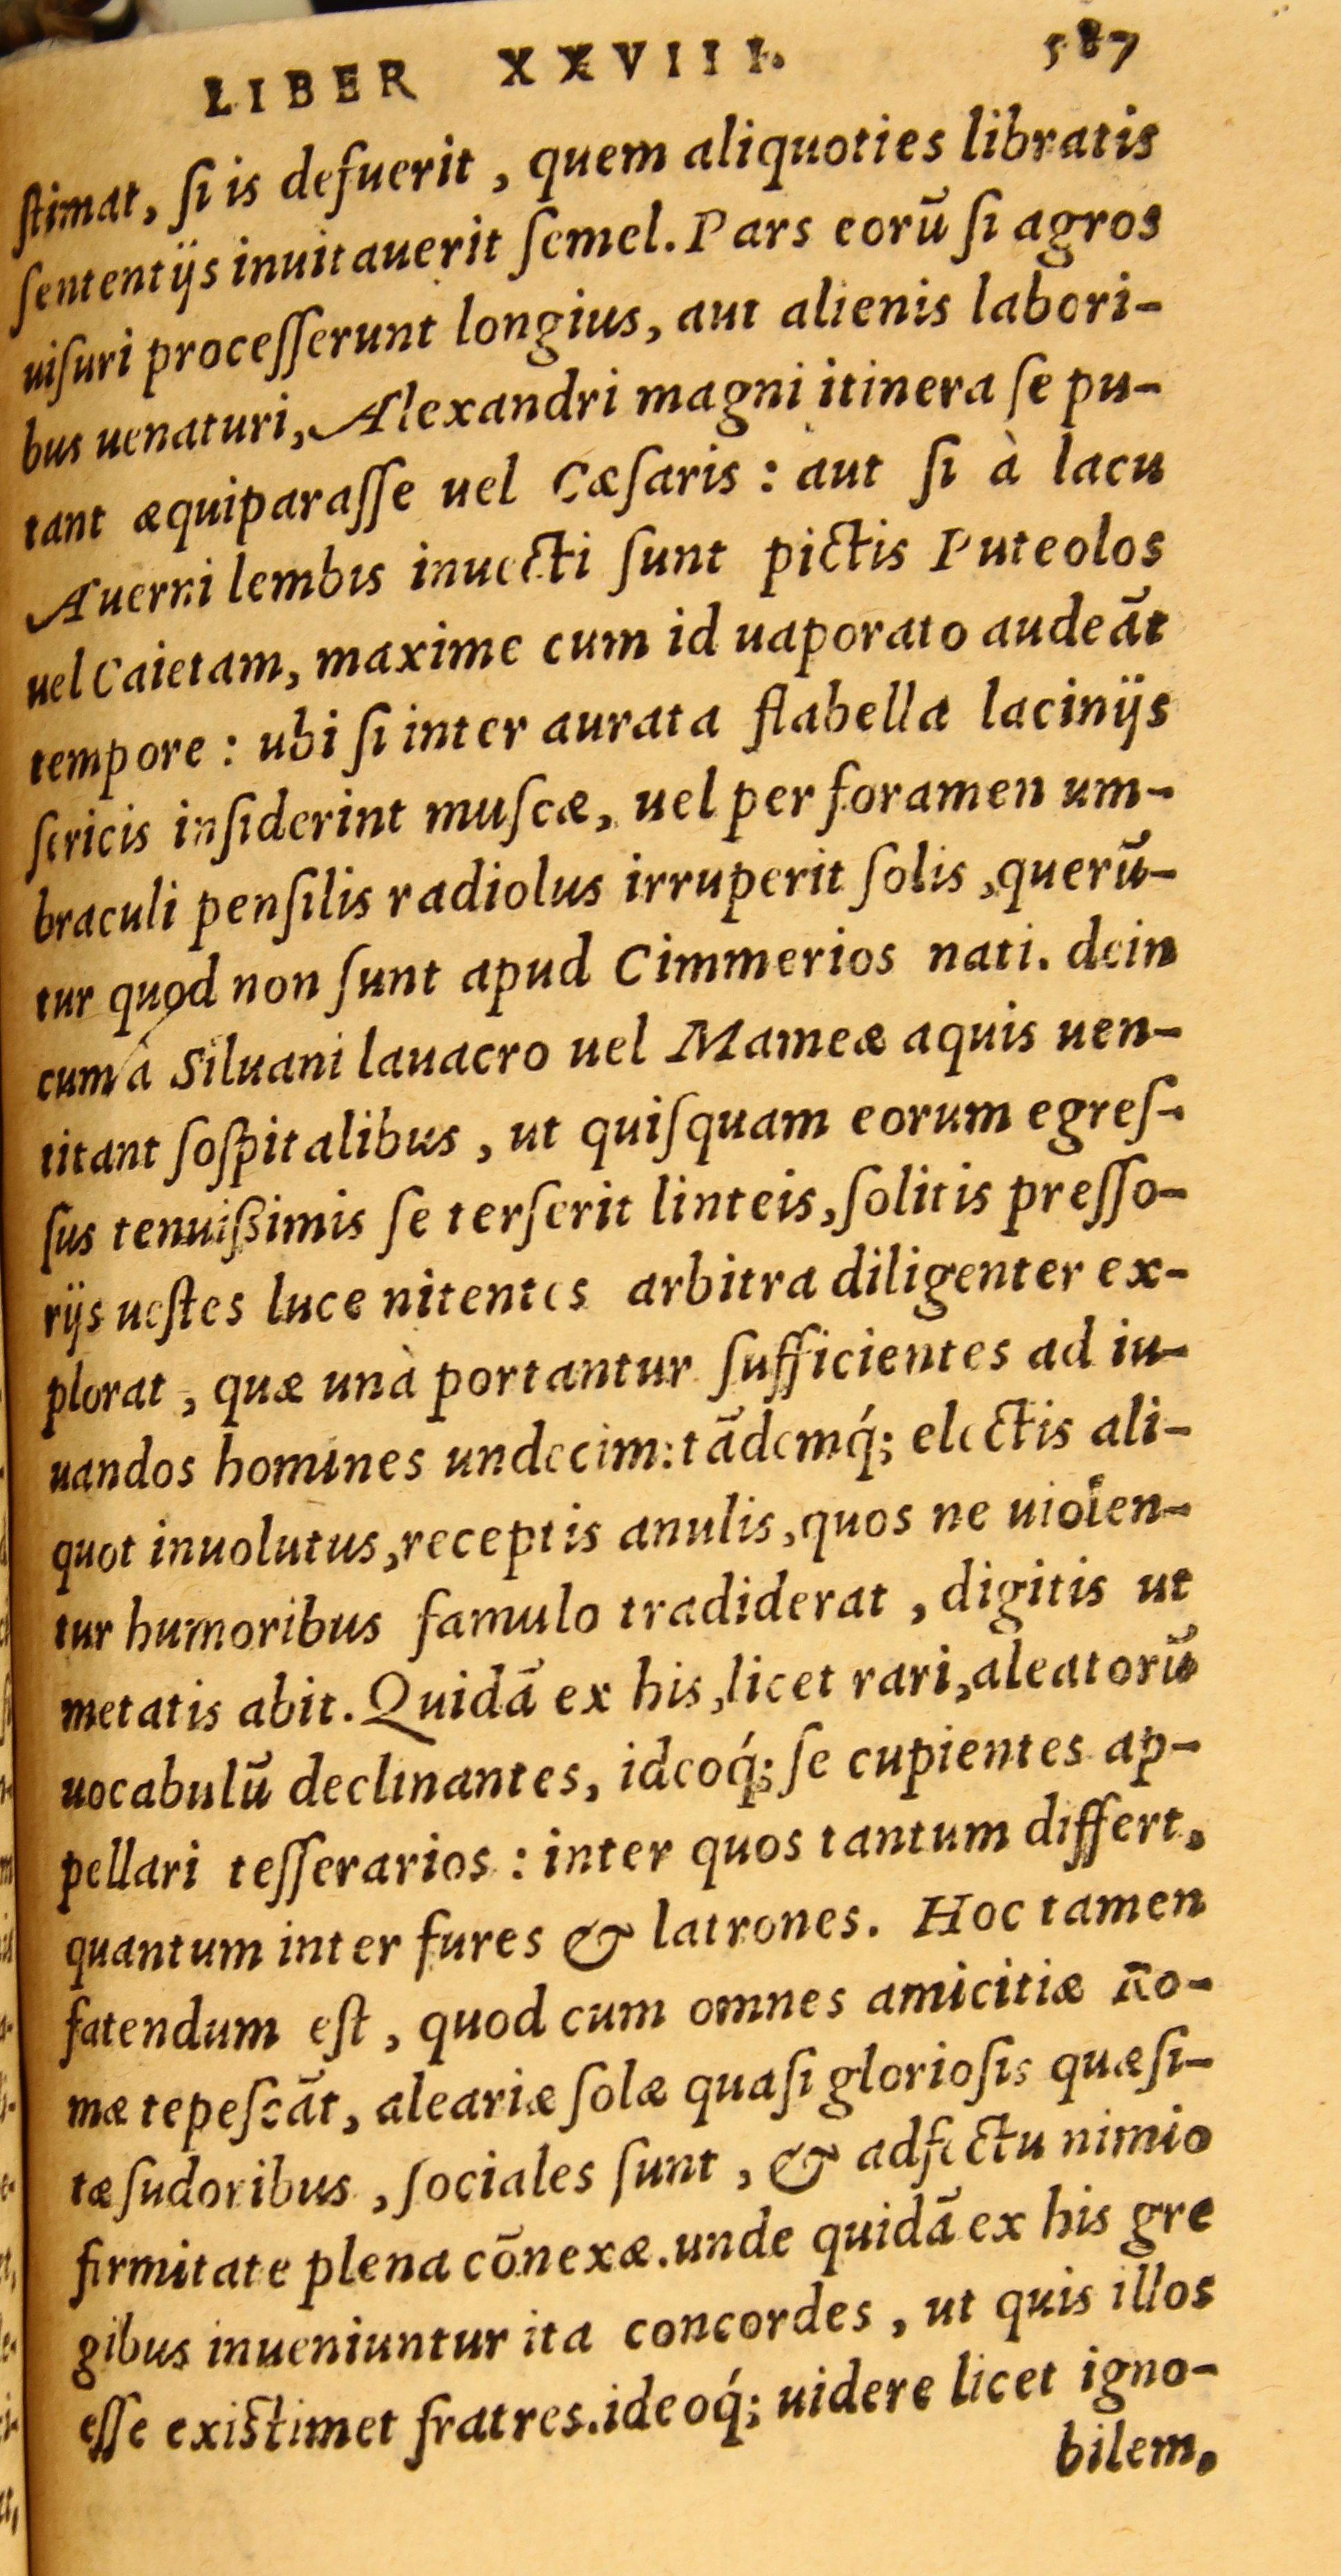 LIBER XXVIII. 587
ſtimat, ſi is defuerit, quem aliquoties libratis
ſententijs inuitauerit ſemel. Pars eorū ſi agros
uiſuri proceſſerunt longius, aut alienis labori-
bus uenaturi, Alexandri magni itinera ſe pu-
tant æquiparaſſe uel Cæſaris: aut ſi à lacu
Auerni lembis inuecti ſunt pictis Puteolos
uel Caietam, maxime cum id uaporato audeāt
tempore: ubi ſi inter aurata flabella lacinijs
ſericis inſiderint muſcæ, uel per foramen um-
braculi penſilis radiolus irruperit ſolis, querū-
tur quod non ſunt apud Cimmerios nati. dein
cum à Siluani lauacro uel Mameæ aquis uen-
titant ſoſpitalibus, ut quiſquam eorum egreſ-
ſus tenuiſsimis ſe terſerit linteis, ſolitis preſſo-
rijs ueſtes luce nitentes arbitra diligenter ex-
plorat, quæ unà portantur ſufficientes ad iu-
uandos homines undecim: tādemq́; electis ali-
quot inuolutus, receptis anulis, quos ne uiolen-
tur humoribus famulo tradiderat, digitis ut
metatis abit. Quidā ex his, licet rari, aleatorū
uocabulū declinantes, ideoq́; ſe cupientes ap-
pellari teſſerarios: inter quos tantum differt,
quantum inter fures & latrones. Hoc tamen
fatendum eſt, quod cum omnes amicitiæ Ro-
mæ tepeſcāt, aleariæ ſolæ quaſi glorioſis quæſi-
tæ ſudoribus, ſociales ſunt, & adfectu nimio
firmitate plena cōnexæ. unde quidā ex his gre
gibus inueniuntur ita concordes, ut quis illos
eſſe exiſtimet fratres. ideoq́; uidere licet igno-
bilem,